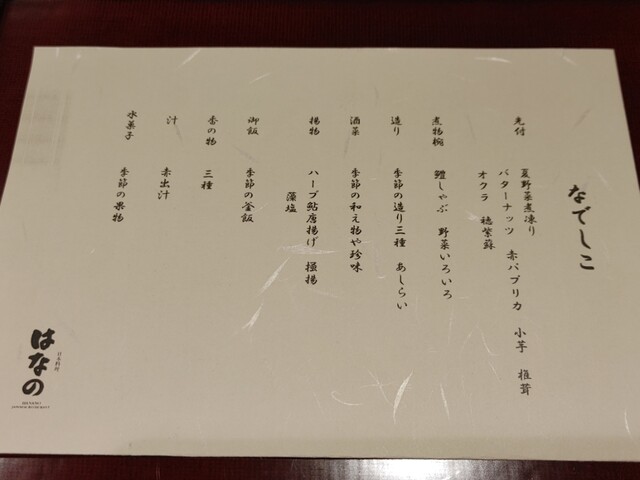 なでしこ
先付
夏野菜煮凍り
バターナッツ 赤パプリカ 小芋 椎茸
オクラ 穂紫蘇
煮物椀
鱧しゃぶ 野菜いろいろ
造り
季節の造り三種 あしらい
酒菜
季節の和え物や珍味
揚物
ハーブ鮎唐揚げ 掻揚
藻塩
御飯
季節の釜飯
香の物
三種
汁
赤出汁
水菓子
季節の果物
日本料理
はなの
HANANO
JAPANESE RESTAURANT